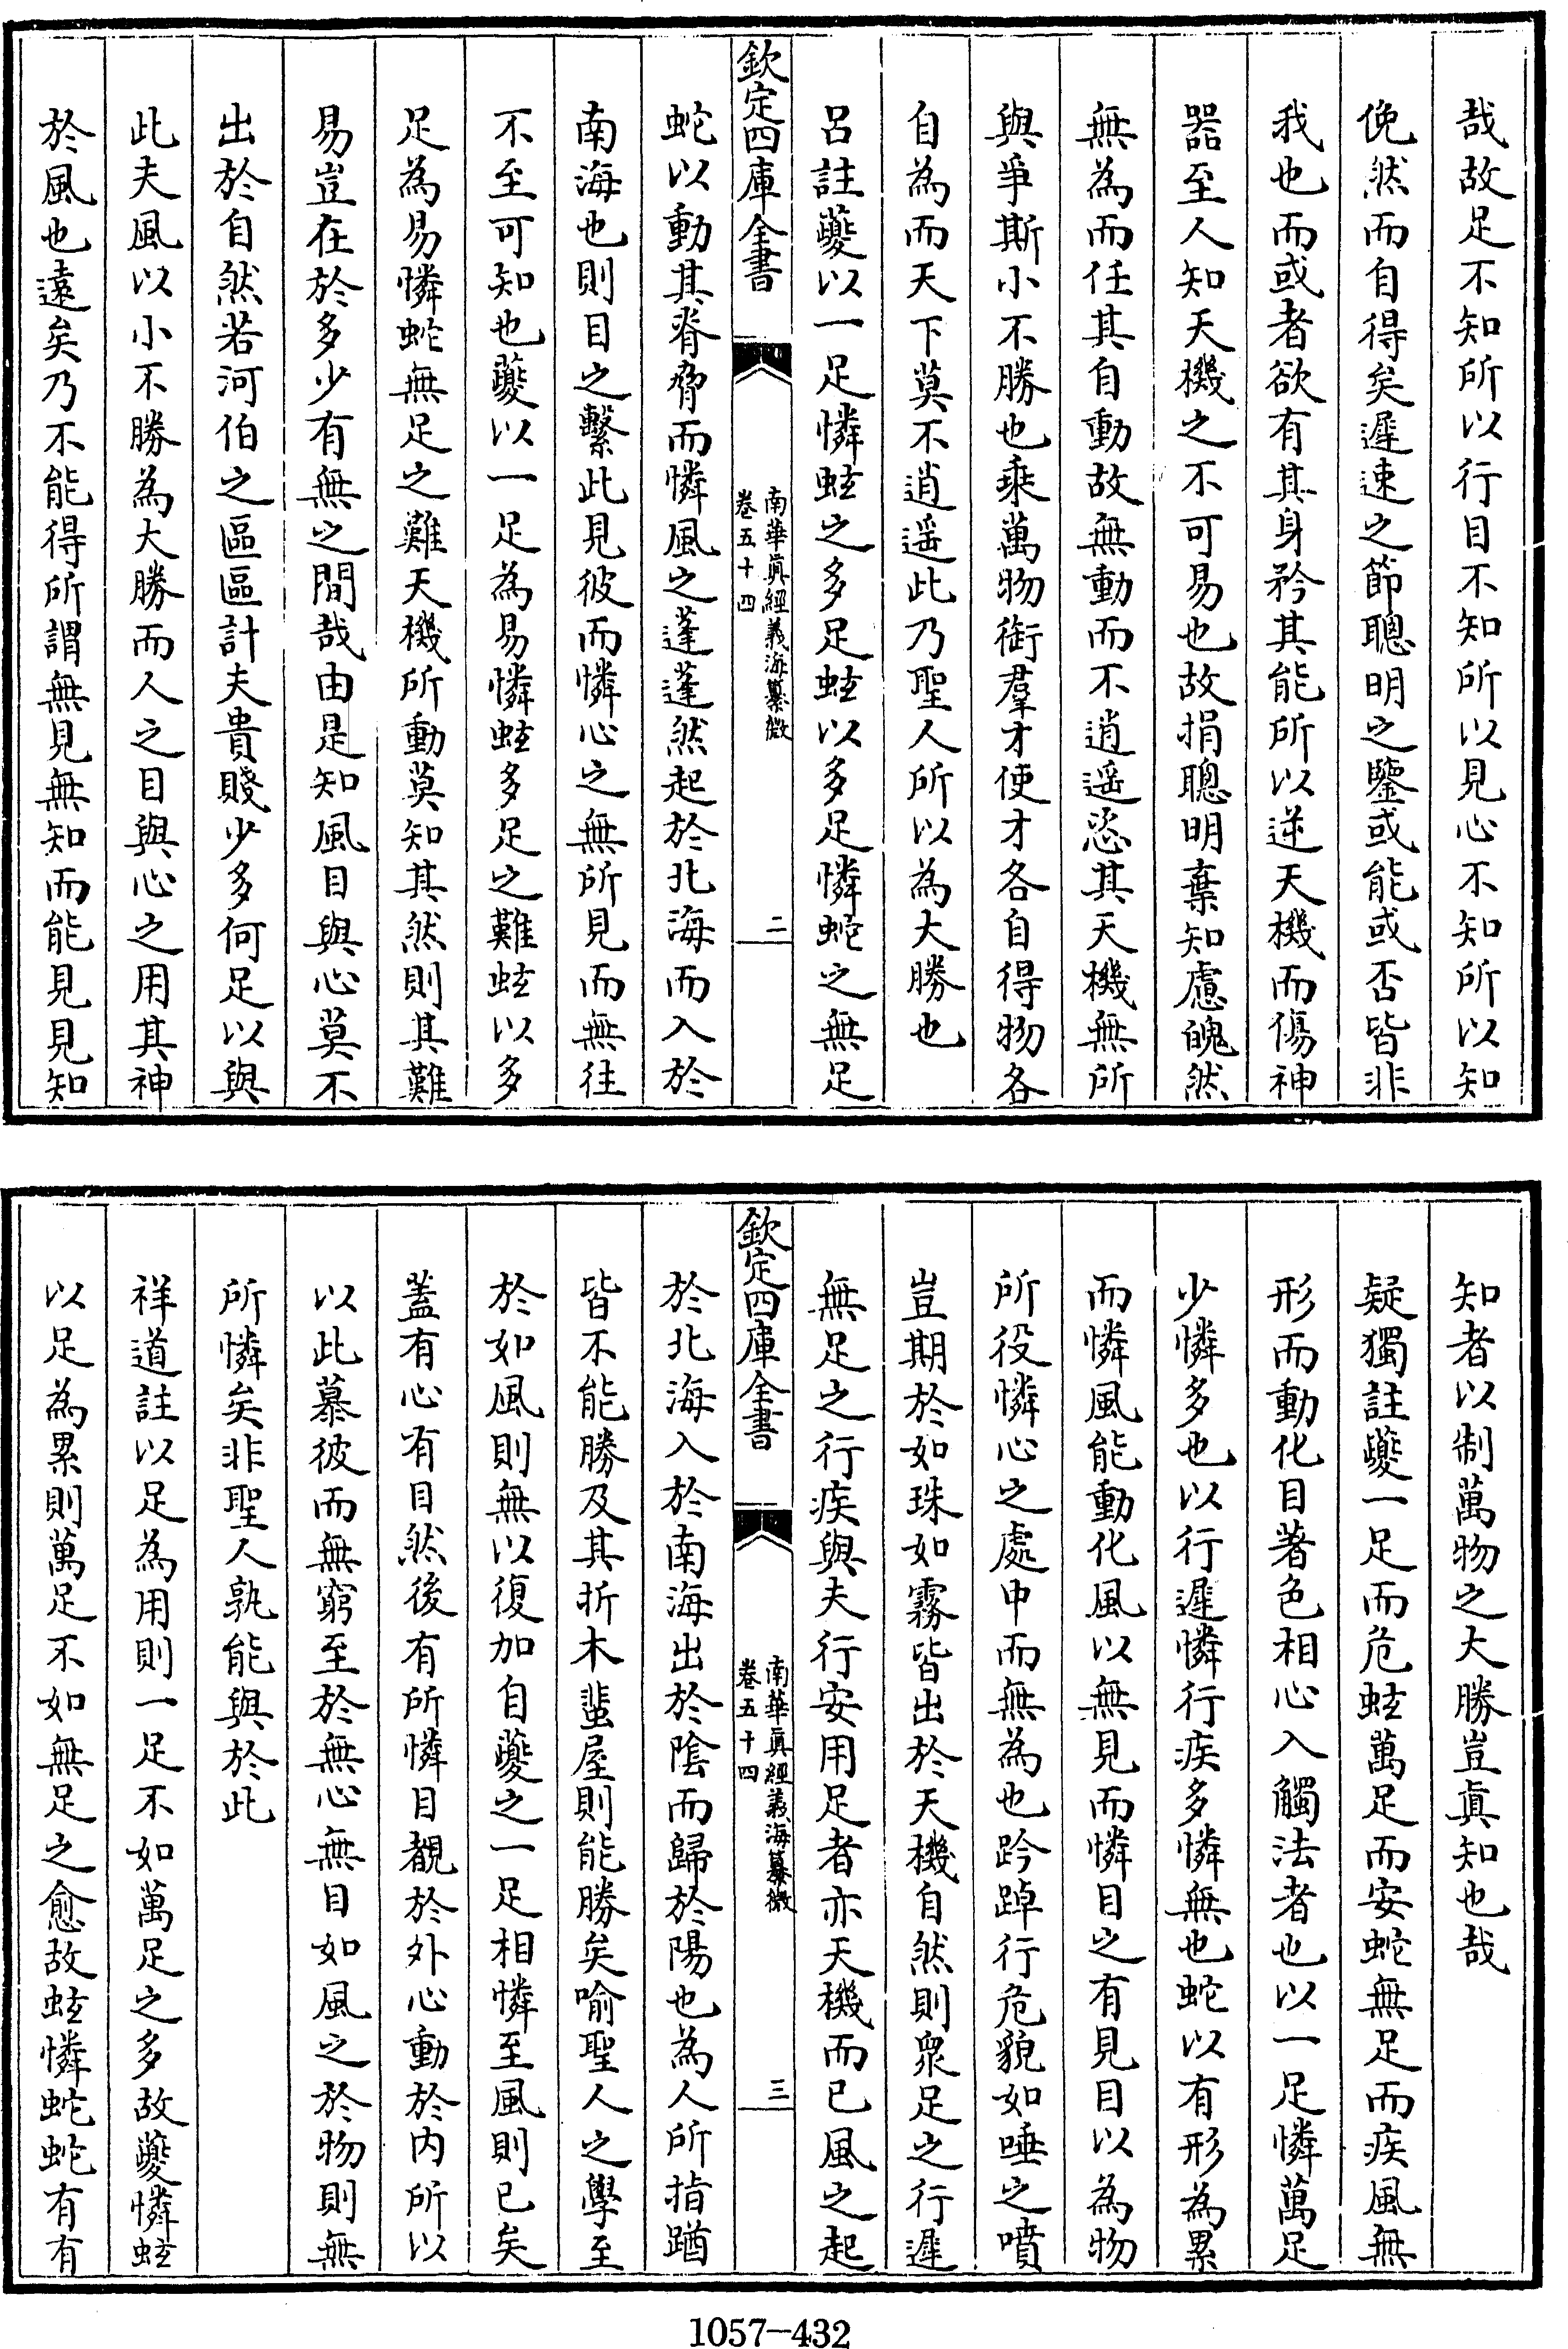 哉故足不知所以行目不知所以見心不知所以知
俛然而自得矣遲速之節聰明之鑒或能或否皆非
我也而或者欲有其身矜其能所以逆天機而傷神
器至人知天機之不可易也故捐聰明棄知慮魄然
無為而任其自動故無動而不逍遥恣其天機無所
與爭斯小不勝也乘萬物御羣才使才各自得物各
自為而天下莫不逍遥此乃聖人所以為大勝也
呂註夔以一足憐蚿之多足蚿以多足憐蛇之無足
欽定四庫全書
南華眞經義海纂微
卷五十四
二
蛇以動其脊脅而憐風之蓬蓬然起於北海而入於
南海也則目之繫此見彼而憐心之無所見而無往
不至可知也夔以一足為易憐蚿多足之難蚿以多
足為易憐蛇無足之難天機所動莫知其然則其難
易豈在於多少有無之間哉由是知風目與心莫不
出於自然若河伯之區區計夫貴賤少多何足以與
此夫風以小不勝為大勝而人之目與心之用其神
於風也遠矣乃不能得所謂無見無知而能見見知
知者以制萬物之大勝豈眞知也哉
疑獨註夔一足而危蚿萬足而安蛇無足而疾風無
形而動化目著色相心入觸法者也以一足憐萬足
少憐多也以行遲憐行疾多憐無也蛇以有形為累
而憐風能動化風以無見而憐目之有見目以為物
所役憐心之處中而無為也趻踔行危貌如唾之噴
豈期於如珠如霧皆出於天機自然則衆足之行遲
無足之行疾與夫行安用足者亦天機而已風之起
欽定四庫全書
南華眞經義海纂微
卷五十四
三
於北海入於南海出於隂而歸於陽也為人所指蹈
皆不能勝及其折木蜚屋則能勝矣喻聖人之學至
於如風則無以復加自夔之一足相憐至風則已矣
蓋有心有目然後有所憐目覩於外心動於内所以
以此慕彼而無窮至於無心無目如風之於物則無
所憐矣非聖人孰能與於此
祥道註以足為用則一足不如萬足之多故夔憐蚿
以足為累則萬足不如無足之愈故蚿憐蛇蛇有有
1057-432